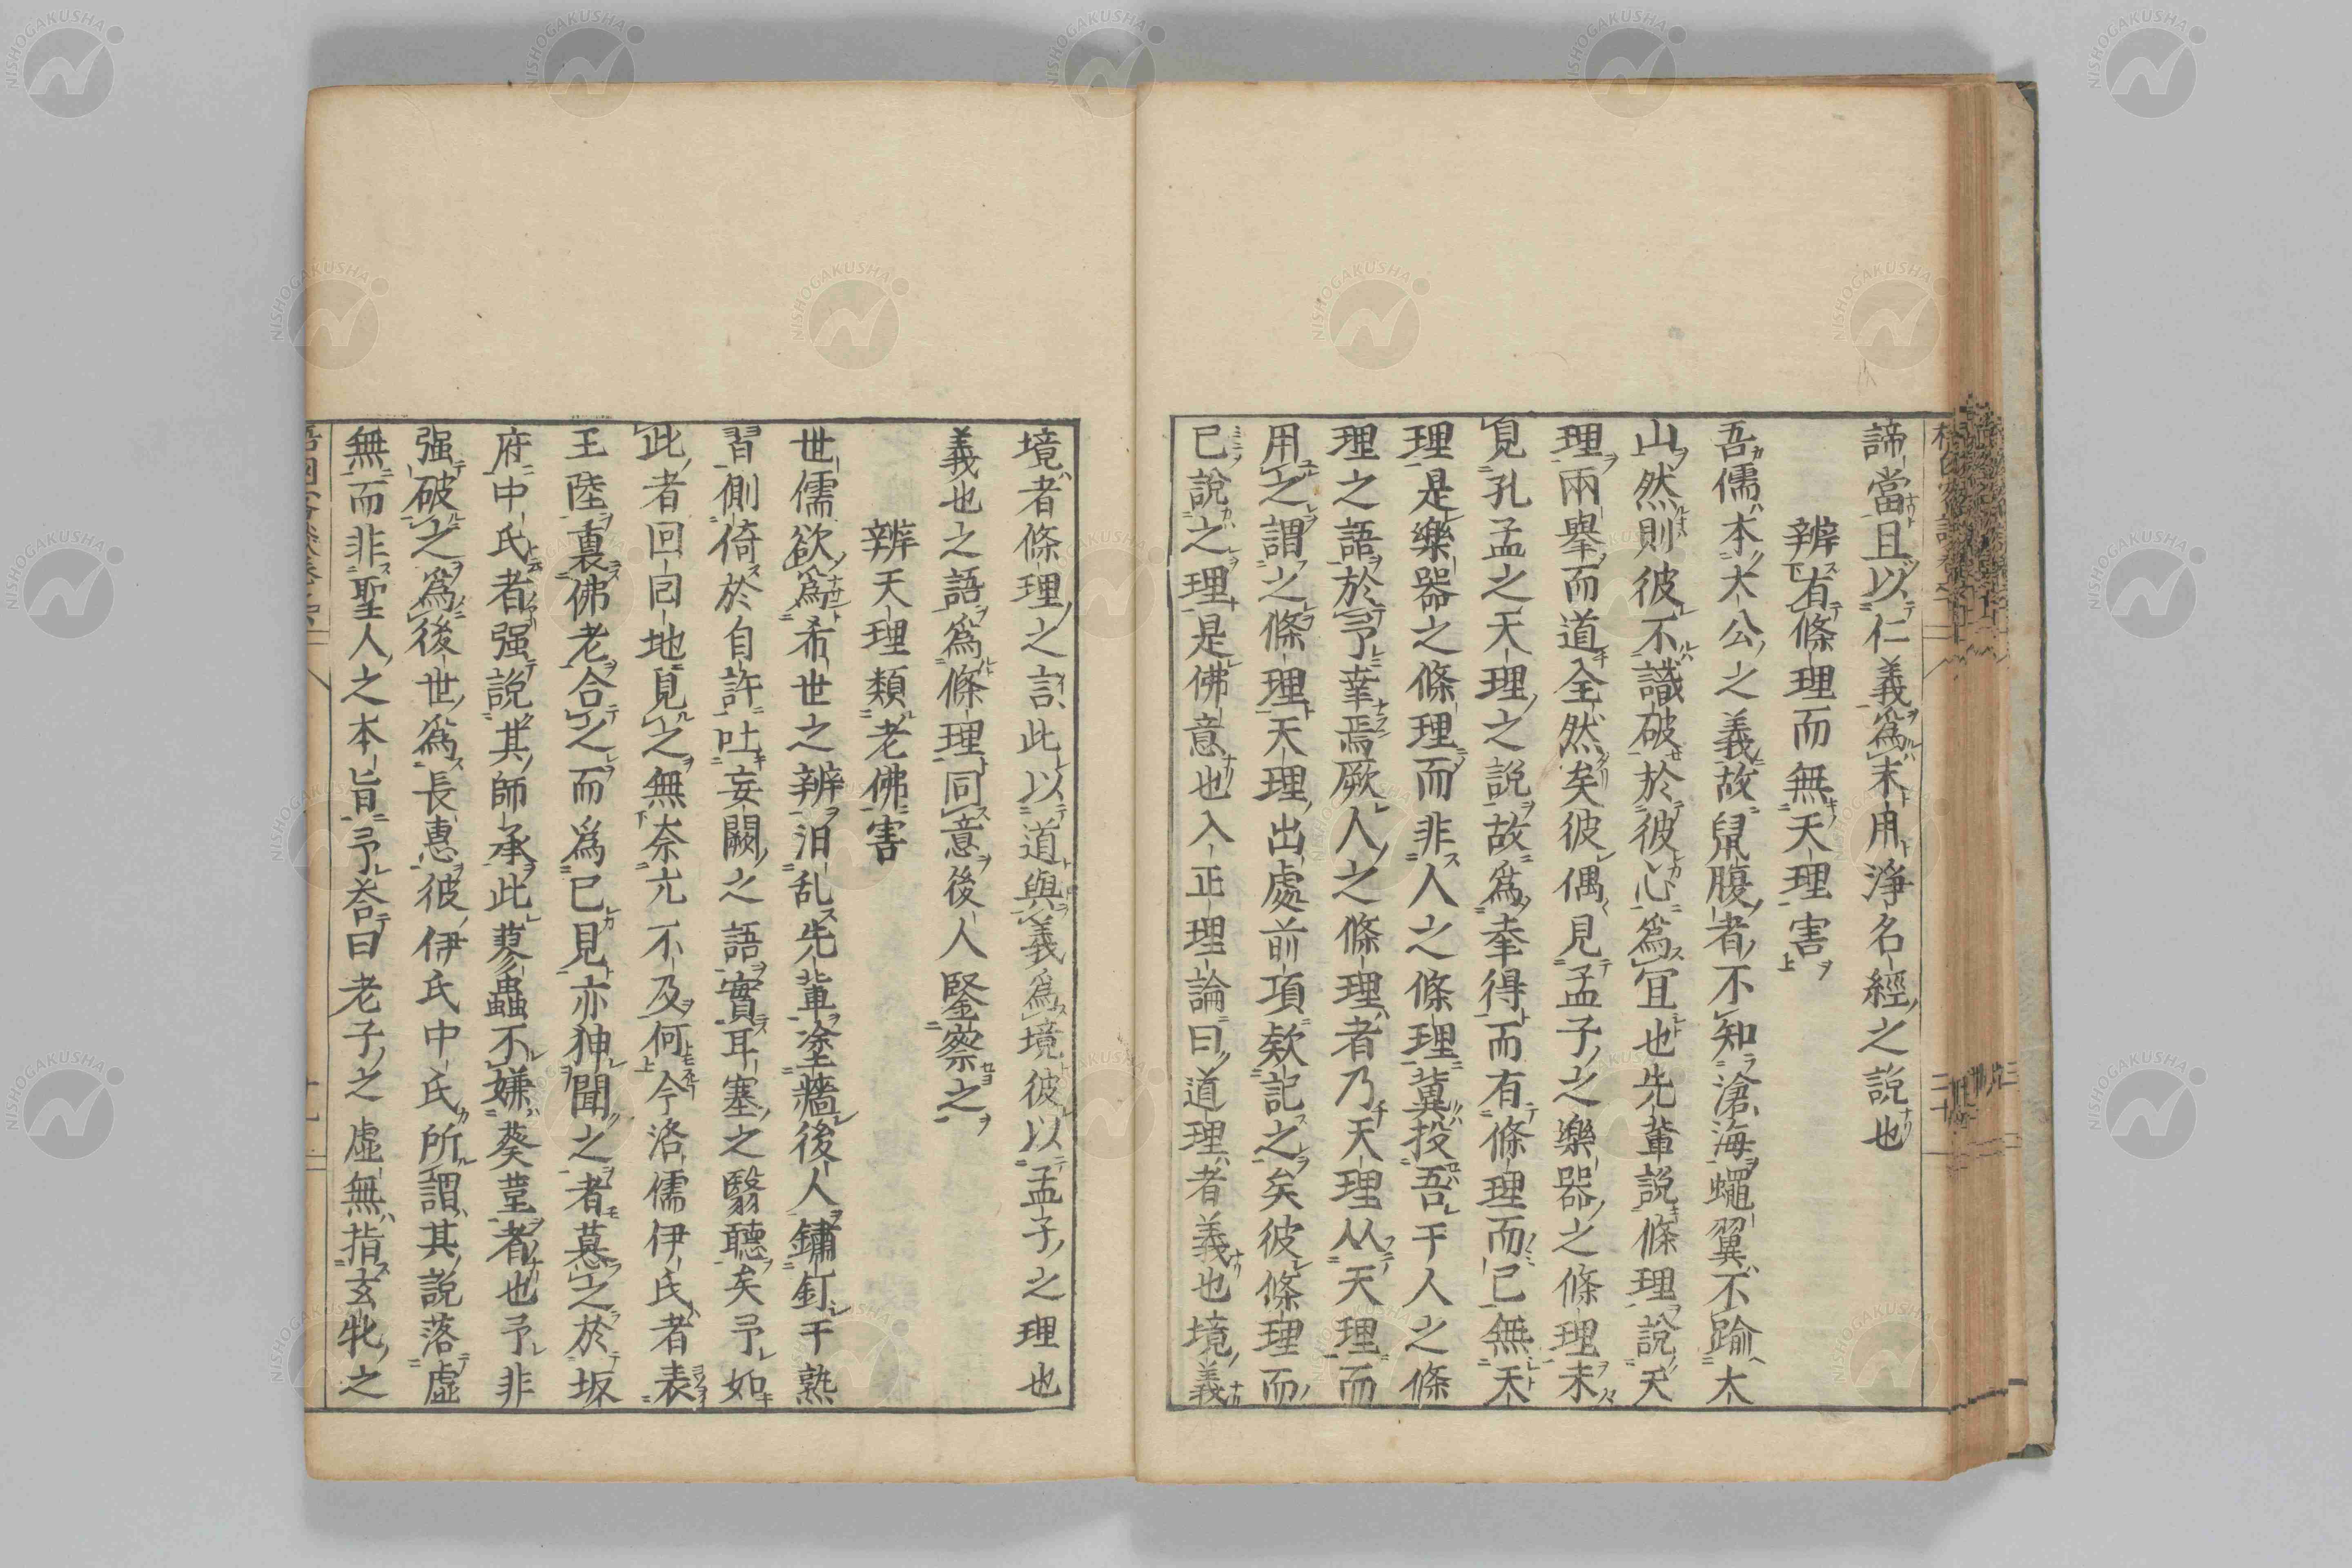 諦當且以仁義爲末用淨名經之說也
辨有條理而無天理害
吾儒本大公之義故鼠腹者不知滄海蠅翼不踰太
山然則彼不識破於彼心爲宜也先輩說條理說天
理兩擧而道全然矣彼偶見孟子之樂器之條理未
見孔孟之天理之說故爲幸得而有條理而已無天
理是樂器之條理而非人之條理冀投吾于人之條
理之語於予幸焉厥人之條理者乃天理从天理而
用之謂之條理天理出處前項欵記之矣彼條理而
已說之理是佛意也入正理論曰道理者義也境義
境者條理之言此以道與義爲境彼以孟子之理也
義也之語爲條理同意後人鋻察之
辨天理類老佛害
世儒欲爲希世之辨汨乱先輩塗牆後人鏽釘于熟
習側倚於自許吐妄闢之語實耳塞之翳聽矣予如
此者回回地見之無奈尢不及何今洛儒伊氏者表
王陸裏佛老合之而爲已見亦狎聞之者慕之於坂
府中氏者强說其師承此蓼蟲不嫌葵菫者也予非
强破之爲後世爲長惠彼伊氏中氏所謂其說落虛
無而非聖人之本旨予荅曰老子之虛無指玄牝之
NISHOGAKUSHA